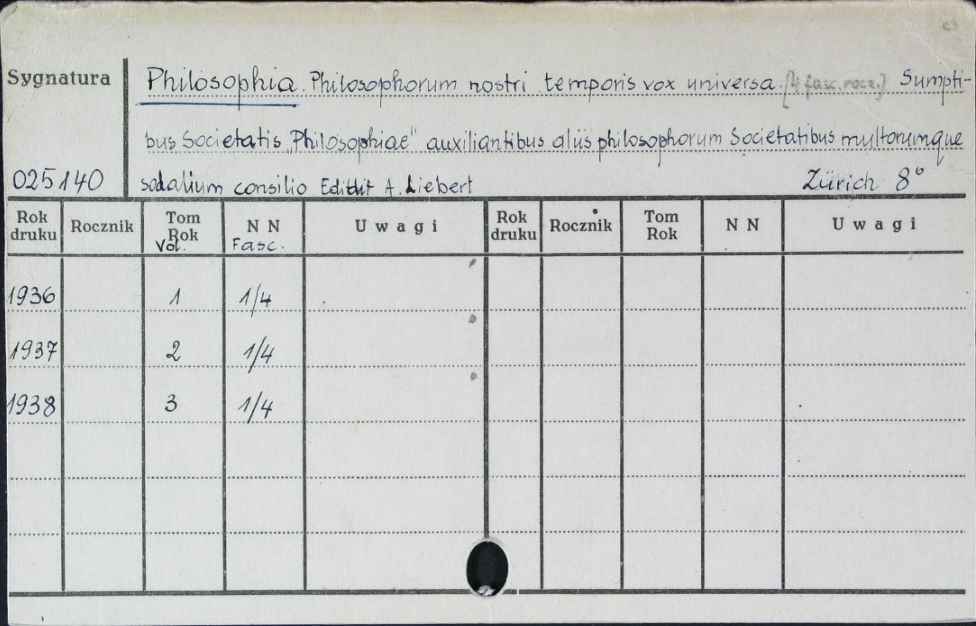 Sygnatura Philosophia. Philosophorum nostri temporis vox universa. [4 fasc. rocz.] Sumpti-
bus Societatis "Philosophiae" auxiliantibus aliis philosophorum Societatibus multorumque
025140 sodalium consilio Edidit A. Liebert Zürich 8°
Rok druku Rocznik Tom Rok Vol. N N Fasc. Uwagi Rok druku Rocznik Tom Rok N N Uwagi
1936 1 1/4
1937 2 1/4
1938 3 1/4